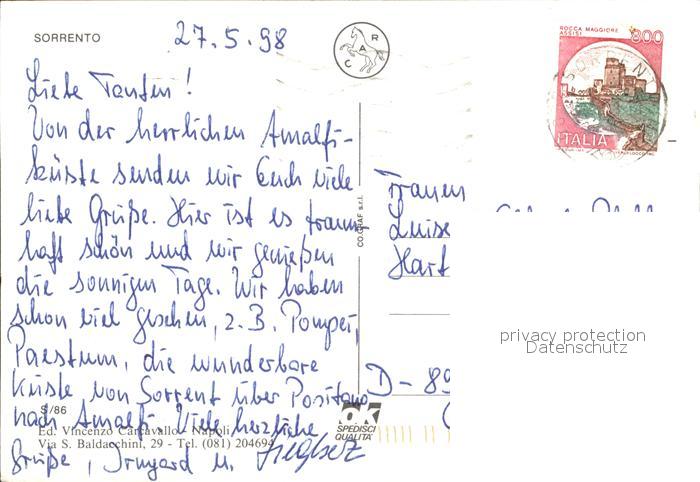 SORRENTO
27.5.98
CARC
ROCCA MAGGIORE
ASSISI
800
ITALIA
Liebe Tanten!
Von der herrlichen Amalfi-
küste senden wir Euch viele
liebe Grüße. Hier ist es traum-
haft schön und wir genießen
die sonnigen Tage. Wir haben
schon viel gesehen, z.B. Pompei,
Paestum, die wunderbare
Küste von Sorrent über Positano
nach Amalfi. Viele herzliche
Grüße, Irmgard u.
S/86
Ed. Vincenzo Carcavallo - Napoli
Via S. Baldacchini, 29 - Tel. (081) 204694
CO.GRAF s.r.l.
SPEDISCI
QUALITÀ
Frauen
Luise
Hart
D-89
privacy protection
Datenschutz